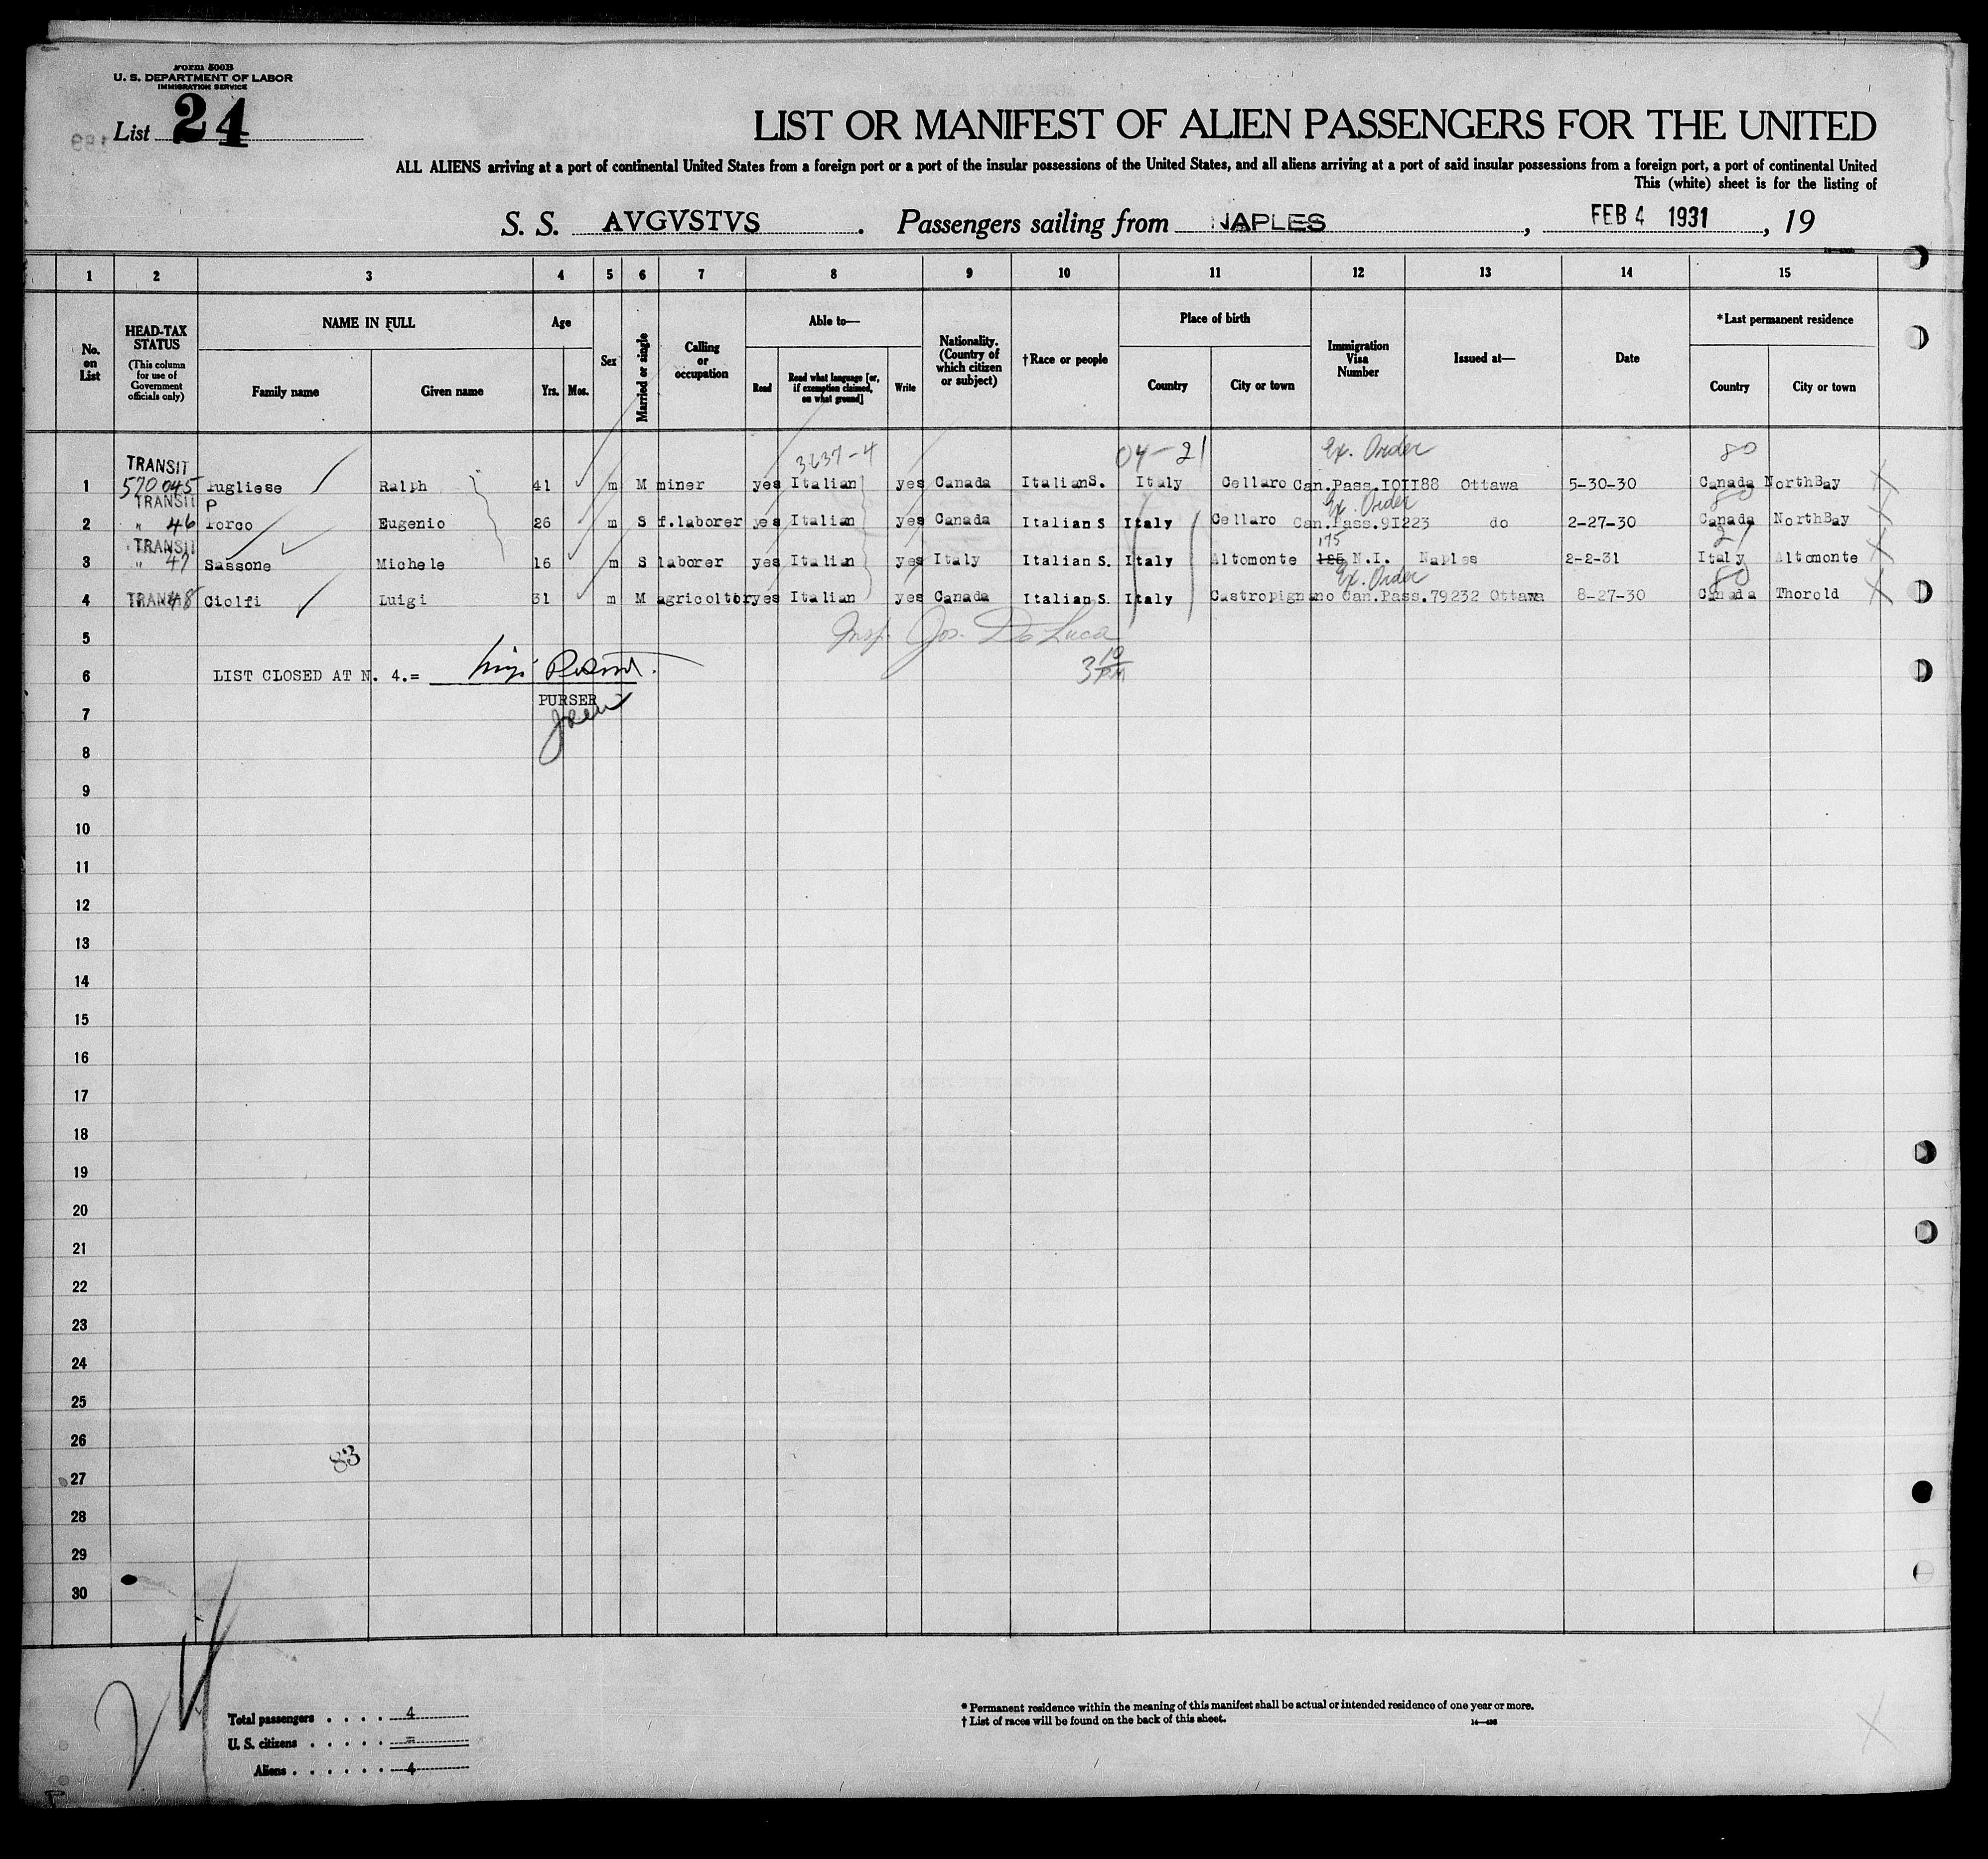 Form 500B
U. S. DEPARTMENT OF LABOR
IMMIGRATION SERVICE
List 24
LIST OR MANIFEST OF ALIEN PASSENGERS FOR THE UNITED
ALL ALIENS arriving at a port of continental United States from a foreign port or a port of the insular possessions of the United States, and all aliens arriving at a port of said insular possessions from a foreign port, a port of continental United
This (white) sheet is for the listing of
S. S. AVGVSTVS. Passengers sailing from NAPLES, FEB 4 1931, 19
1 2 3 4 5 6 7 8 9 10 11 12 13 14 15
No. on List
HEAD-TAX STATUS (This column for use of Government officials only)
NAME IN FULL
Family name Given name
Age
Yrs. Mos.
Sex
Married or single
Calling or occupation
Able to—
Read Read what language [or, if exemption claimed, on what ground] Write
Nationality. (Country of which citizen or subject)
†Race or people
Place of birth
Country City or town
Immigration Visa Number
Issued at—
Date
*Last permanent residence
Country City or town
3637-4 04-21 Ex. Order 80
TRANSIT
1 570 045 Pugliese Ralph 41 m M miner yes Italian yes Canada ItalianS. Italy Cellaro Can.Pass.IOII88 Ottawa 5-30-30 Canada NorthBay
TRANSIT P Ex. Order 80
2 " 46 Porco Eugenio 26 m S f.laborer yes Italian yes Canada Italian S Italy Cellaro Can.Pass.9I223 do 2-27-30 Canada NorthBay
TRANSIT 175 21
3 " 47 Sassone Michele 16 m S laborer yes Italian yes Italy Italian S. Italy Altomonte 125 N.I. Naples 2-2-31 Italy Altomonte
Ex. Order 80
4 TRANSIT 48 Ciolfi Luigi 31 m M agricoltor yes Italian yes Canada Italian S. Italy Castropignano Can.Pass.79232 Ottawa 8-27-30 Canada Thorold
5 Insp. Jos. De Luca
3 10 PM
6 LIST CLOSED AT N. 4.=
PURSER
7
8
9
10
11
12
13
14
15
16
17
18
19
20
21
22
23
24
25
26
83
27
28
29
30
24
Total passengers . . . . 4
U. S. citizens . . . . . =
Aliens . . . . . . 4
* Permanent residence within the meaning of this manifest shall be actual or intended residence of one year or more.
† List of races will be found on the back of this sheet.